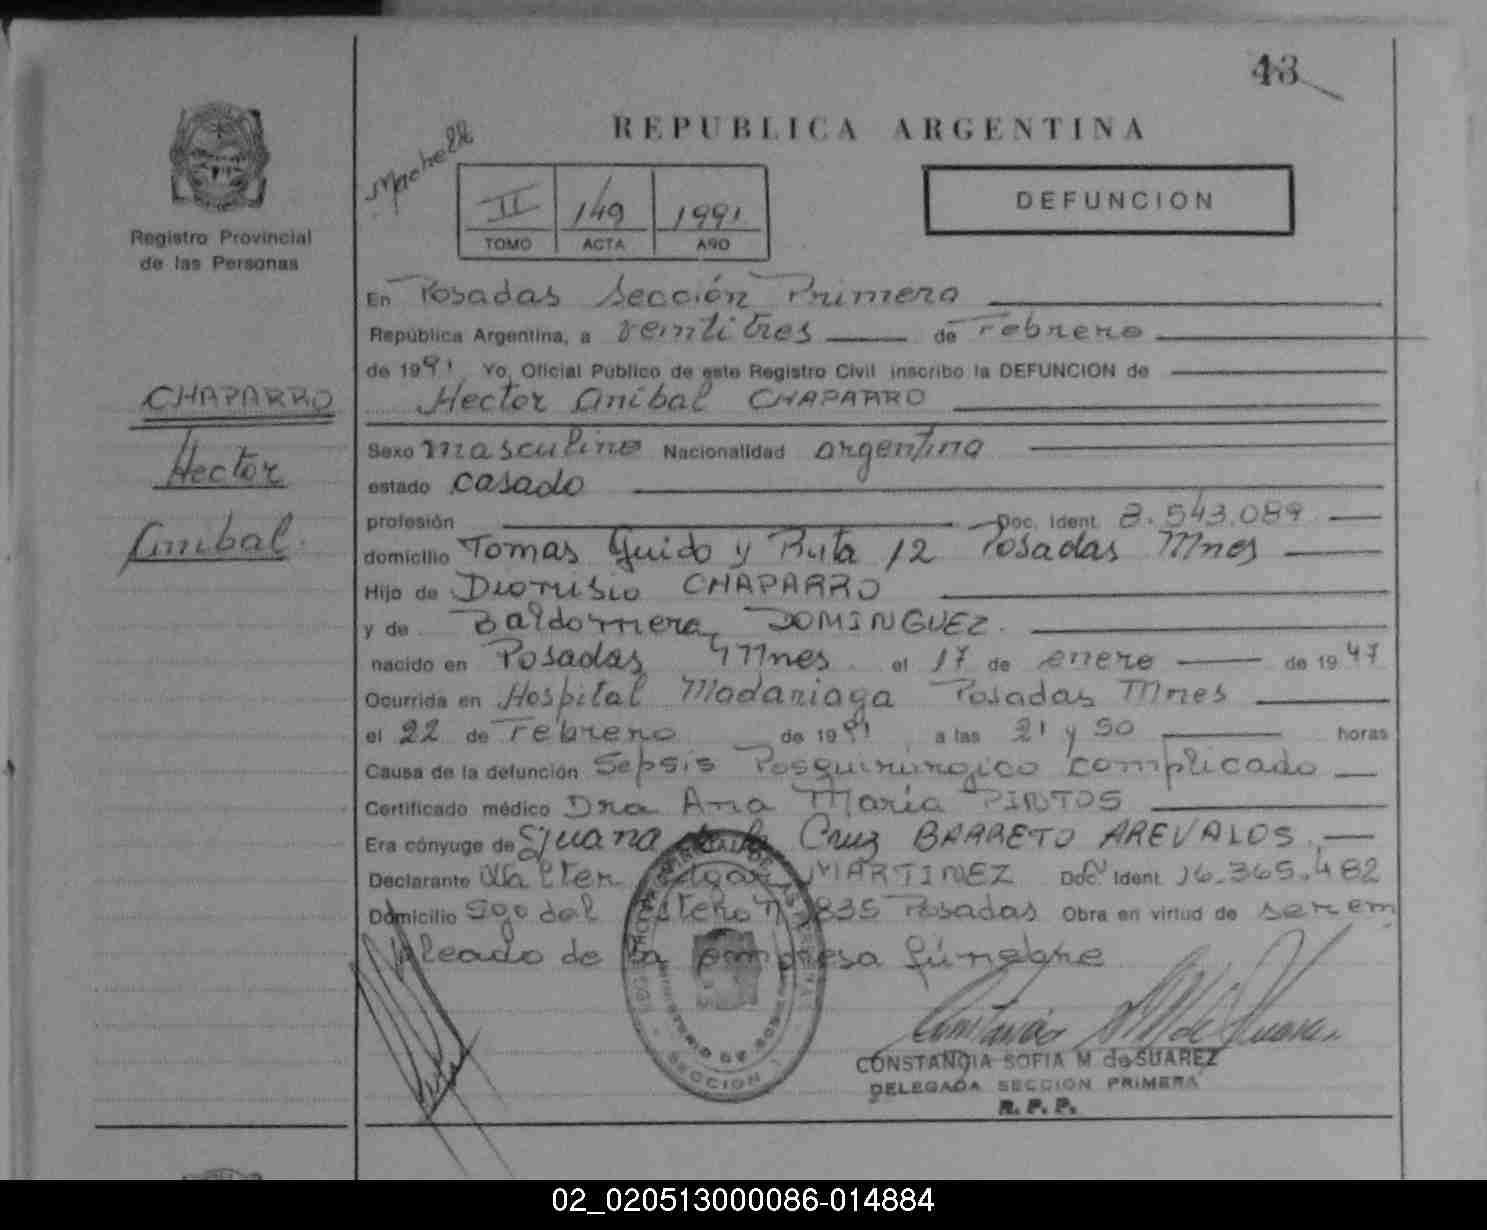 43
REPUBLICA ARGENTINA
Registro Provincial
de las Personas
II 149 1991
TOMO ACTA AÑO
DEFUNCION
CHAPARRO
Hector
Anibal
En Posadas Sección Primera
República Argentina, a veintitres de Febrero
de 1991 Yo, Oficial Público de este Registro Civil inscribo la DEFUNCION de
Hector Anibal CHAPARRO
Sexo masculino Nacionalidad argentina
estado casado
profesión Doc. Ident. 8.543.089
domicilio Tomas Guido y Ruta 12 Posadas Mnes
Hijo de Dionisio CHAPARRO
y de Baldomera DOMINGUEZ
nacido en Posadas Mnes el 17 de enero de 1947
Ocurrida en Hospital Madariaga Posadas Mnes
el 22 de Febrero de 1991 a las 21 y 30 horas
Causa de la defunción Sepsis Posquirurgico complicado
Certificado médico Dra Ana María PINTOS
Era cónyuge de Juana de la Cruz BARRETO AREVALOS
Declarante Walter Edgar MARTINEZ Doc. Ident. 16.365.482
Domicilio Sgo del Estero Nº 835 Posadas Obra en virtud de ser em
pleado de la empresa fúnebre
SECCION 1
CONSTANCIA SOFIA M. de SUAREZ
DELEGADA SECCION PRIMERA
R. P. P.
02_020513000086-014884